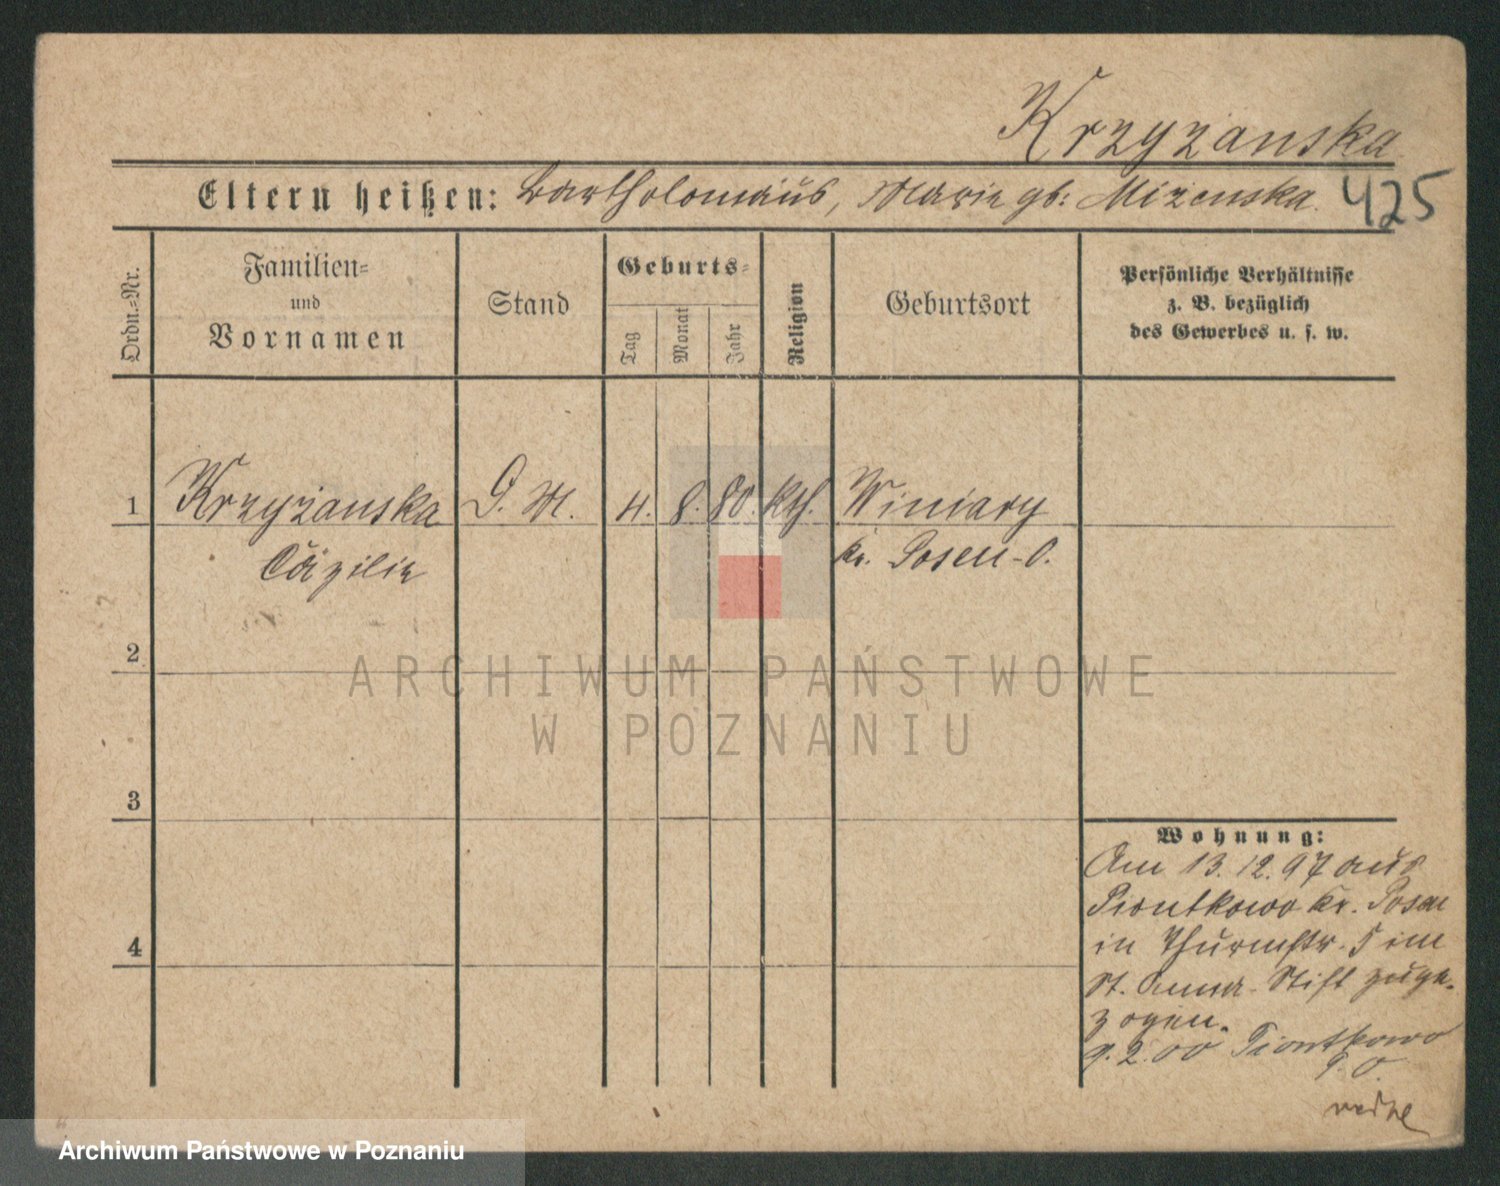 Krzyzanska
Eltern heißen: Bartholomäus, Marie gb: Mizenska. 425
Ordn.=Nr.
Familien=
und
Vornamen
Stand
Geburts=
Tag
Monat
Jahr
Religion
Geburtsort
Persönliche Verhältnisse
z. B. bezüglich
des Gewerbes u. s. w.
1 Krzyżanska D. M. 4. 8. 80. Kth. Winiary
Cäzilie Kr. Posen-O.
2
ARCHIWUM PAŃSTWOWE
W POZNANIU
3
Wohnung:
Am 13.12.97 aus
Piontkowo Kr. Posen
4 in Thurmstr. 5 im
St. Anna-Stift zuge-
zogen.
9.2.00 Piontkowo
P. O.
Archiwum Państwowe w Poznaniu